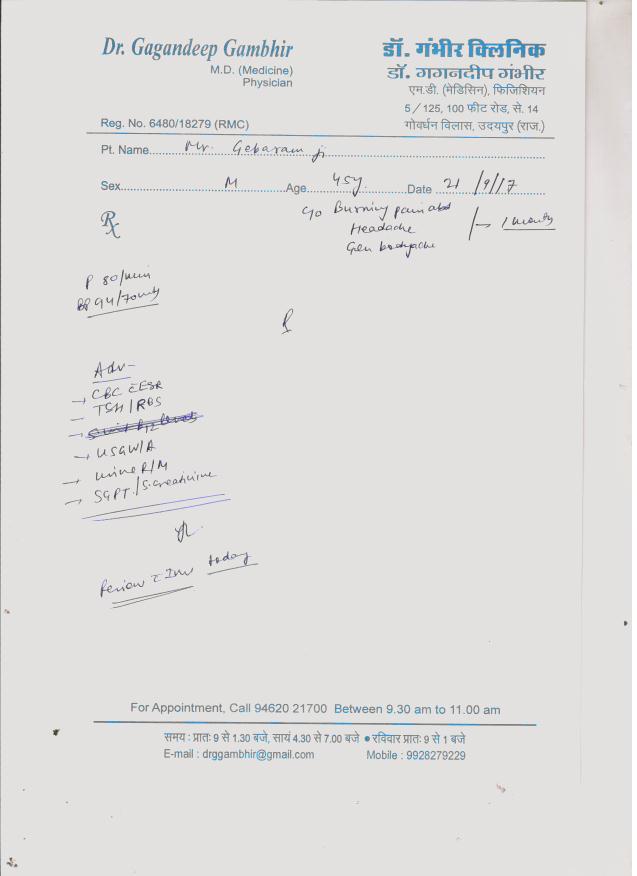 Dr. Gagandeep Gambhir
M.D. (Medicine)
Physician
Reg. No. 6480/18279 (RMC)
डॉ. गंभीर क्लिनिक
डॉ. गगनदीप गंभीर
एम.डी. (मेडिसिन), फिजिशियन
5/125, 100 फीट रोड, से. 14
गोवर्धन विलास, उदयपुर (राज.)
Pt. Name Mr. Gebaram ji
Sex M Age 45y Date 21/9/17
℞
c/o Burning pain abd
Headache
Gen bodyache
1 month
P 80/min
BP 94/70
Adv-
→ CBC c̄ ESR
– TSH/RBS
→ USG W/A
→ Urine R/M
→ SGPT/S.creatinine
Review c̄ Inv today
For Appointment, Call 94620 21700 Between 9.30 am to 11.00 am
समय : प्रातः 9 से 1.30 बजे, सायं 4.30 से 7.00 बजे ● रविवार प्रातः 9 से 1 बजे
E-mail : drggambhir@gmail.com Mobile : 9928279229